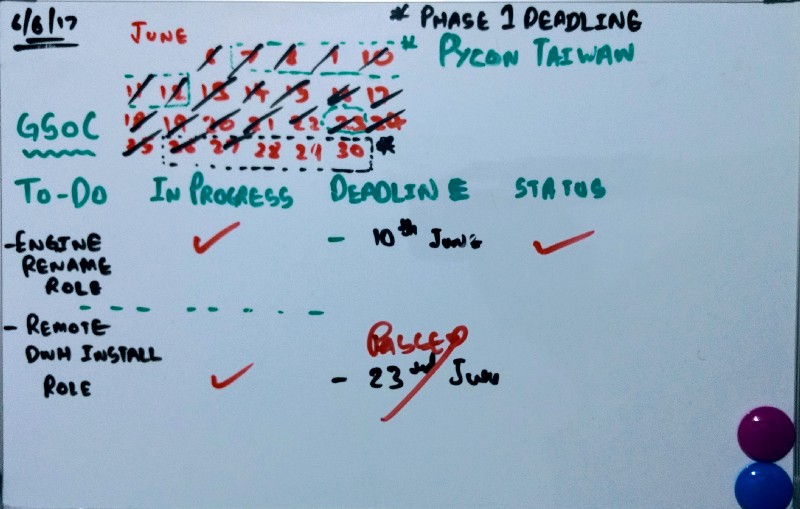 6/6/17
JUNE
* PHASE 1 DEADLINE
* PYCON TAIWAN
6 7 8 9 10
11 12 13 14 15 16 17
18 19 20 21 22 23 24
25 26 27 28 29 30 *
GSOC
TO-DO IN PROGRESS DEADLINE STATUS
- ENGINE RENAME ROLE - 10th JUNE
- REMOTE DWH INSTALL ROLE - 23rd JUNE
PASSED